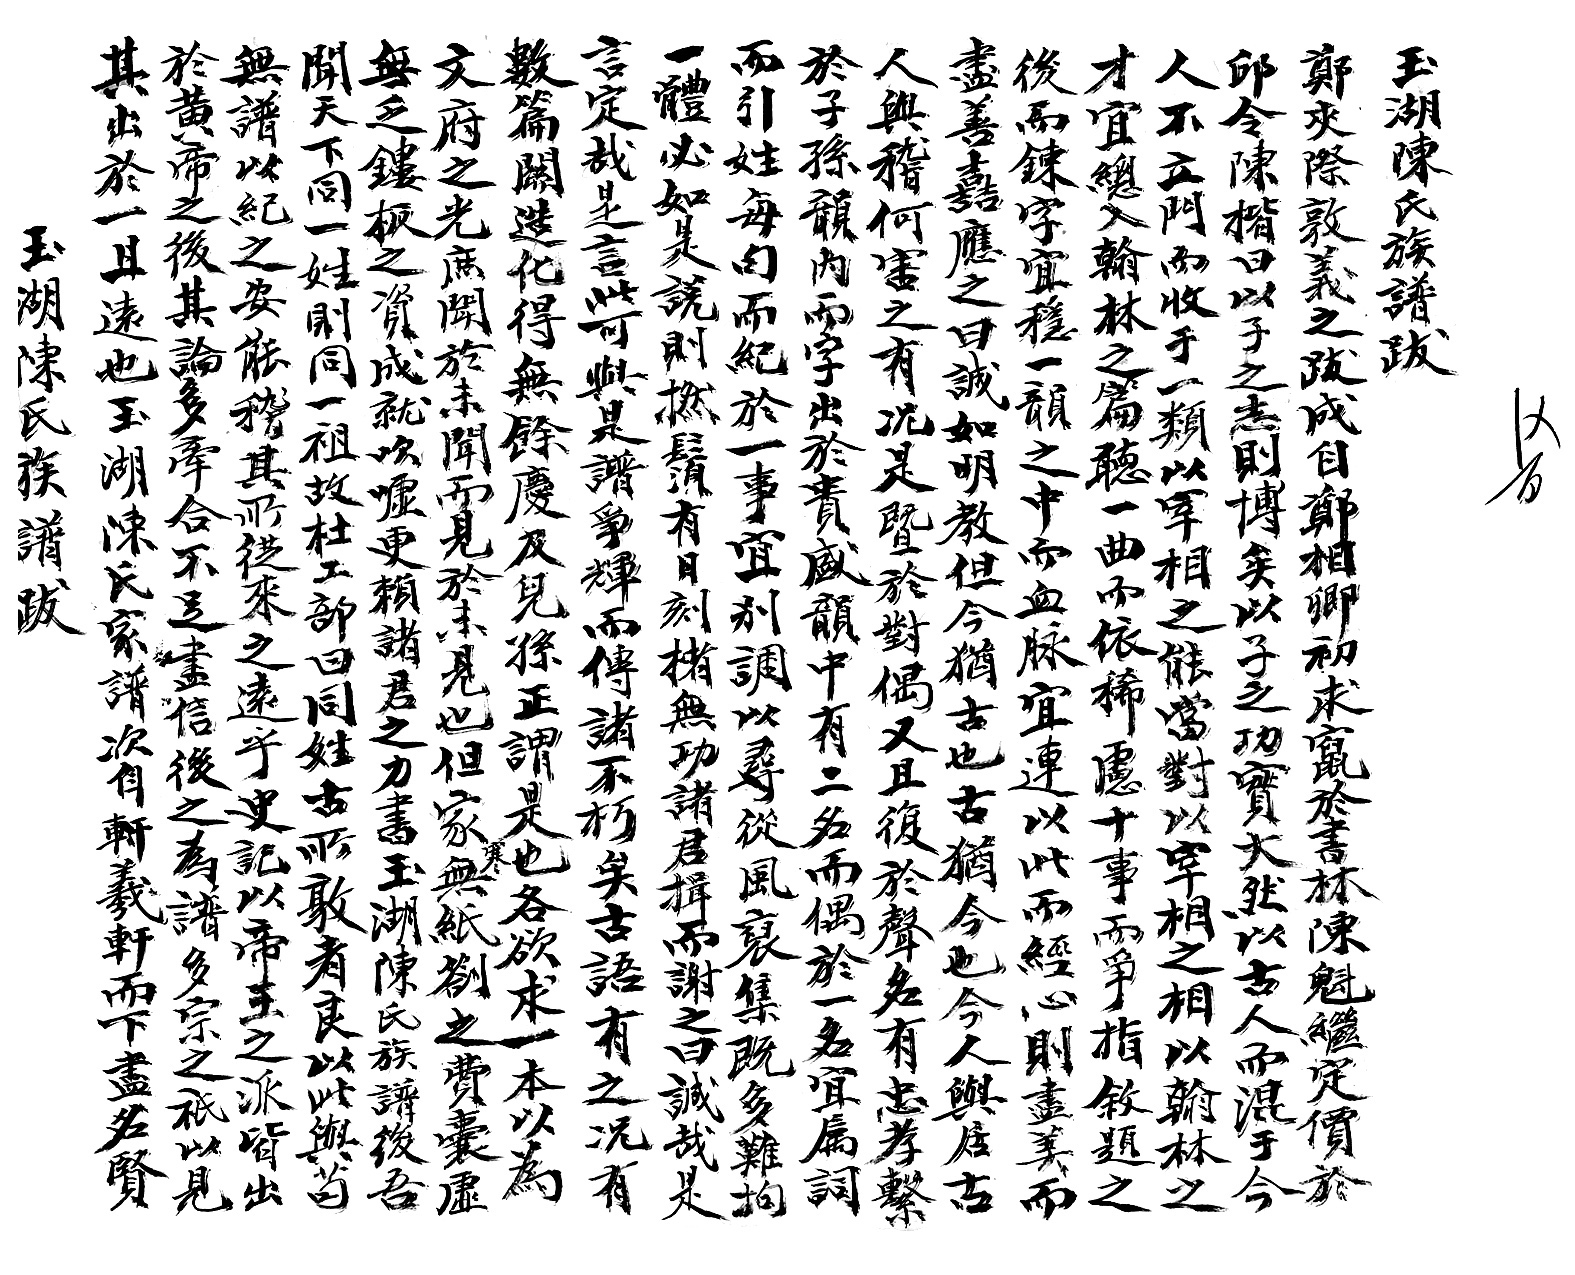 玉湖陳氏族譜跋
鄭夾際敦義之跋成自鄭相卿初求竄於書林陳魁繼定價於
邱令陳楷曰以子之志則博矣以子之功實大然以古人而混于今
人不立門而收于一類以宰相之能當對以宰相之相以翰林之
才宜總入翰林之篇聽一曲而依稀慮十事而爭指敘題之
後而鍊字宜穩一韻之中而血脉宜連以此而經心則盡美而
盡善嘉應之曰誠如明教但今猶古也古猶今也今人與居古
人與稽何害之有况是暨於對偶又且復於聲名有忠孝繫
於子孫韻内而字出於貴盛韻中有二名而偶於一名宜属詞
而引姓每句而紀於一事宜别調以尋從風裒集既多難拘
一體必如是説則撚鬚有日刻楮無功諸君揖而謝之曰誠哉是
言定哉是言此可與是譜爭輝而傳諸不朽矣古語有之况有
數篇關造化得無餘慶及兒孫正謂是也各欲求一本以為
文府之光庶聞於未聞而見於未見也但家寒無紙劄之費囊虛
無乏鏤板之資成就吹噓更賴諸君之力書玉湖陳氏族譜後吾
聞天下同一姓則同一祖故杜工部曰同姓古所敦者良以此與苟
無譜以紀之安能稽其所從來之遠乎史記以帝王之派皆出
於黄帝之後其論多牽合不足盡信後之為譜多宗之祇以見
其出於一且遠也玉湖陳氏家譜次自軒羲軒而下盡名賢
玉湖陳氏族譜跋